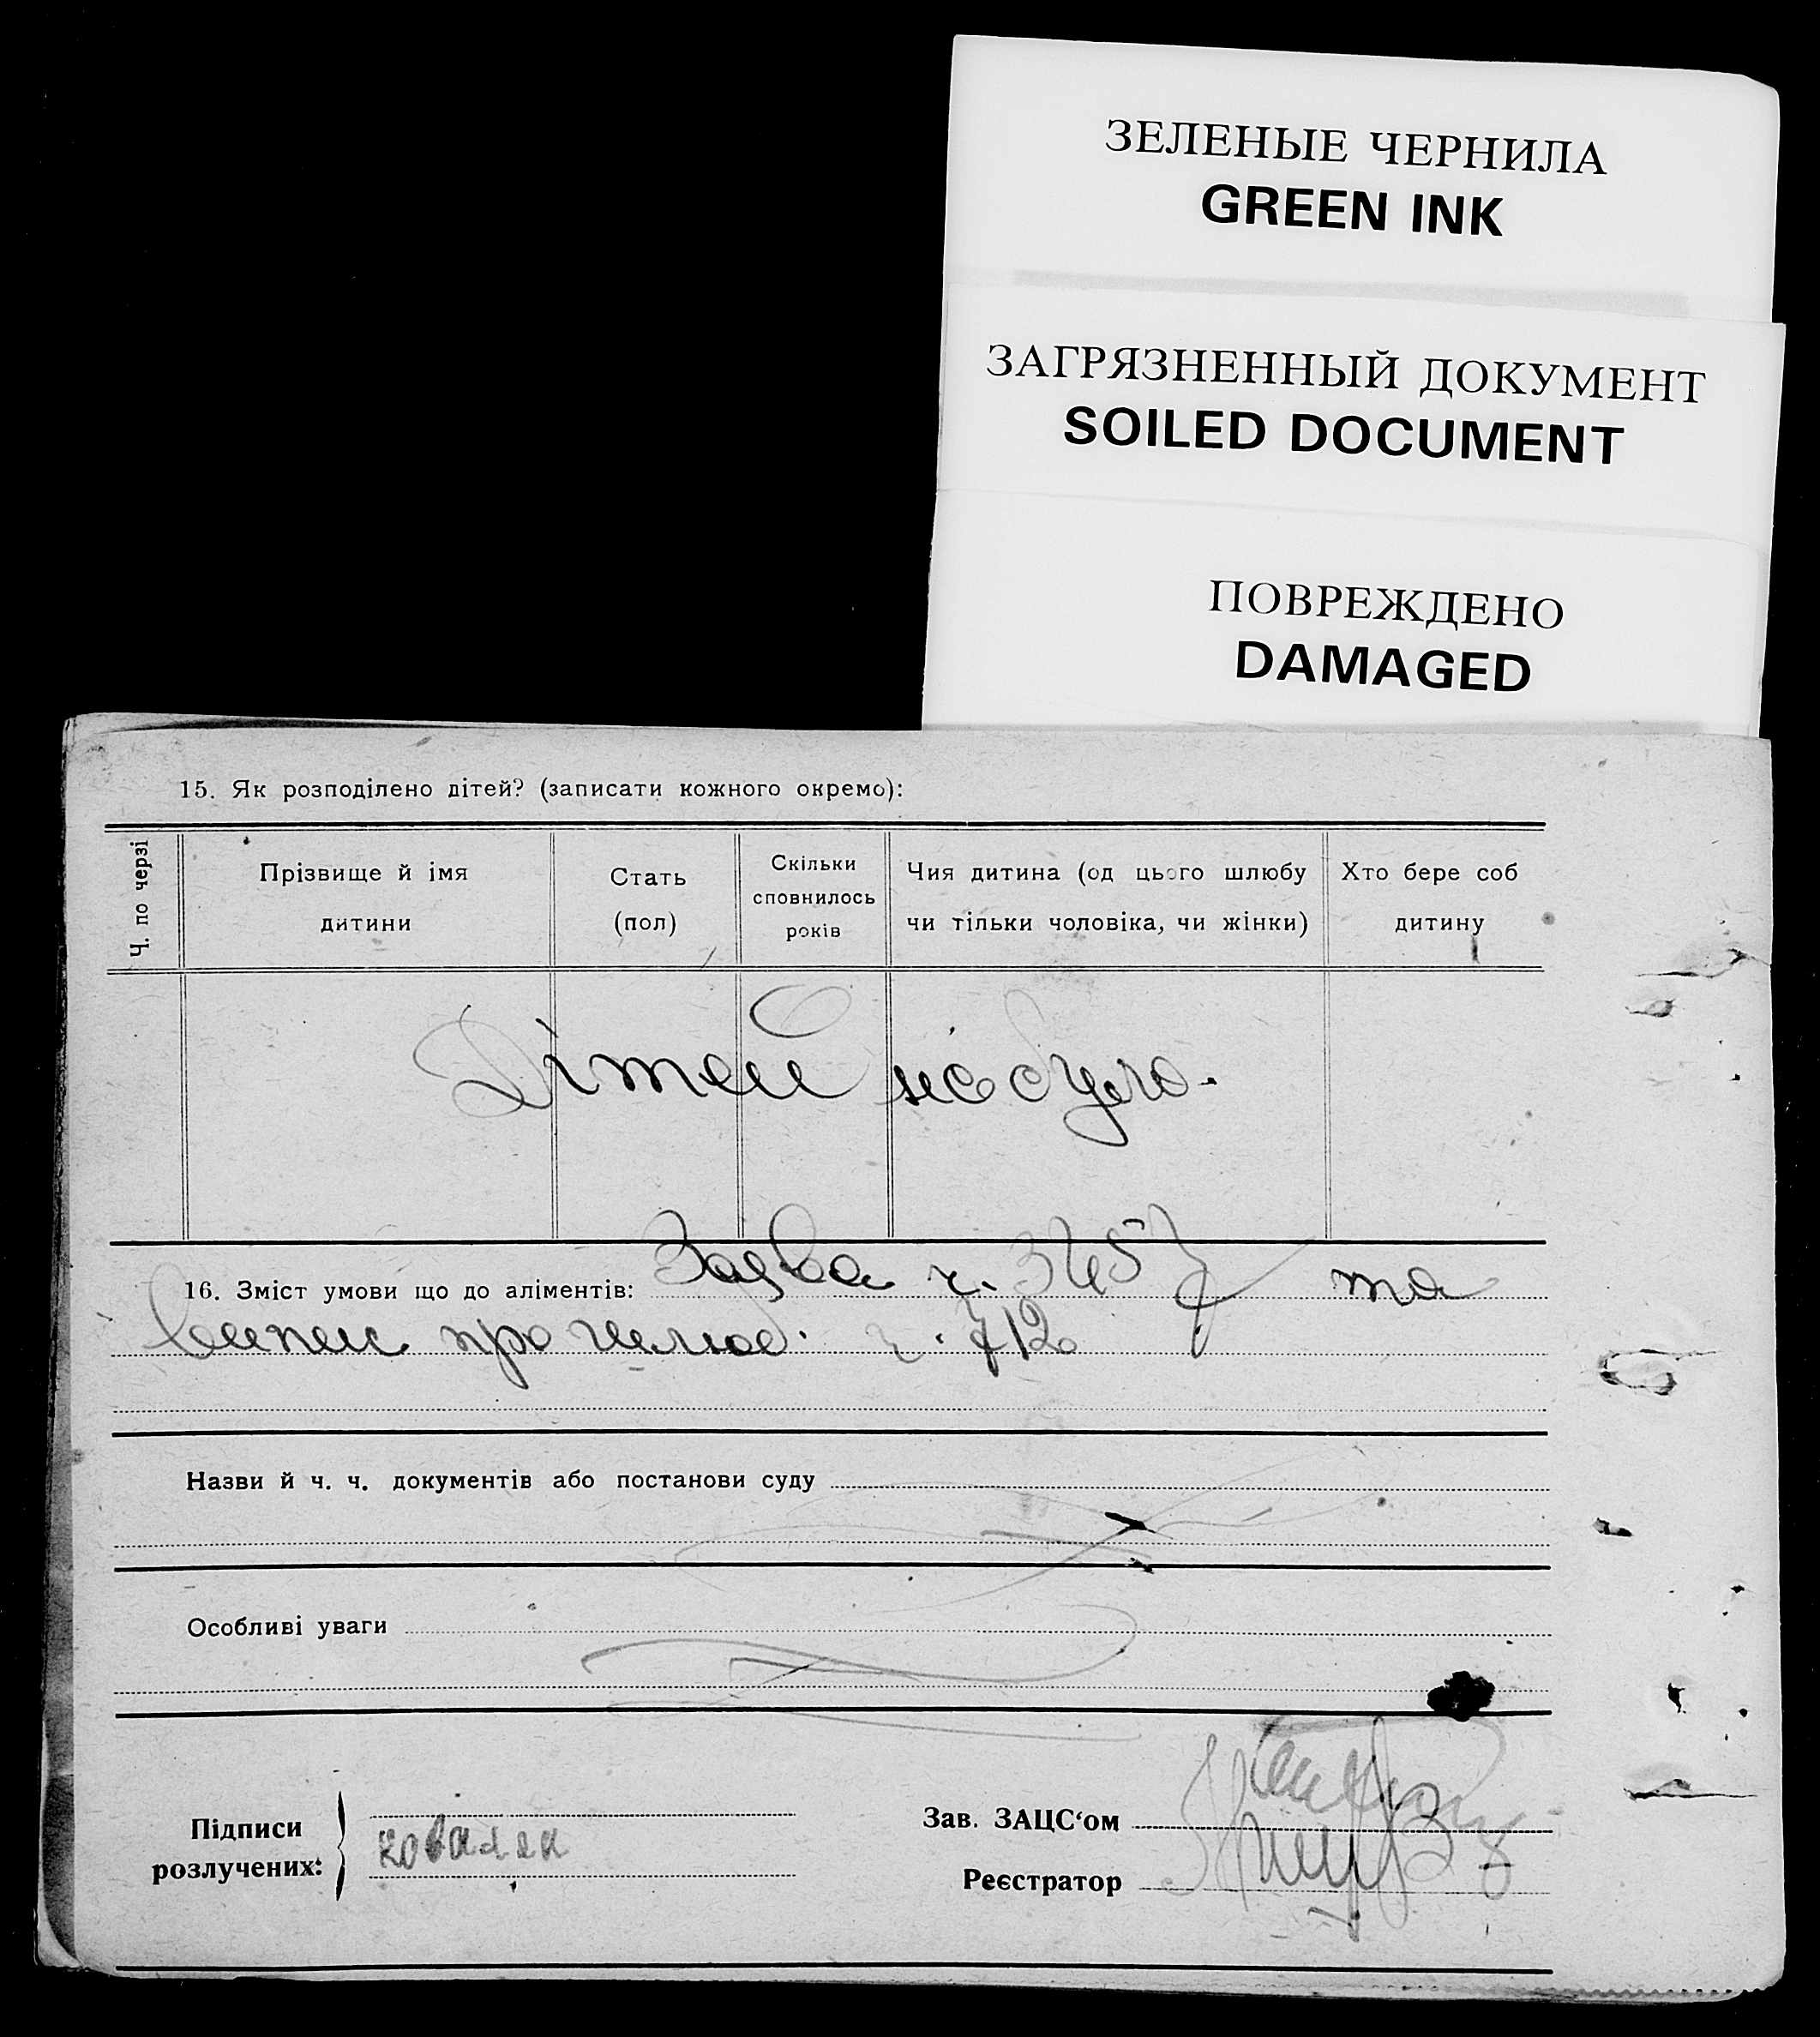 ЗЕЛЕНЫЕ ЧЕРНИЛА
GREEN INK
ЗАГРЯЗНЕННЫЙ ДОКУМЕНТ
SOILED DOCUMENT
ПОВРЕЖДЕНО
DAMAGED
15. Як розподілено дітей? (записати кожного окремо):
Ч. по черзі
Прізвище й імя
дитини
Стать
(пол)
Скільки
сповнилось
років
Чия дитина (од цього шлюбу
чи тільки чоловіка, чи жінки)
Хто бере соб
дитину
Дітей не було.
16. Зміст умови що до аліментів: Заява ч. 3457 та
випис про шлюб. ч. 712
Назви й ч. ч. документів або постанови суду
Особливі уваги
Підписи
розлучених:
ковален
Зав. ЗАЦС‘ом
Реєстратор